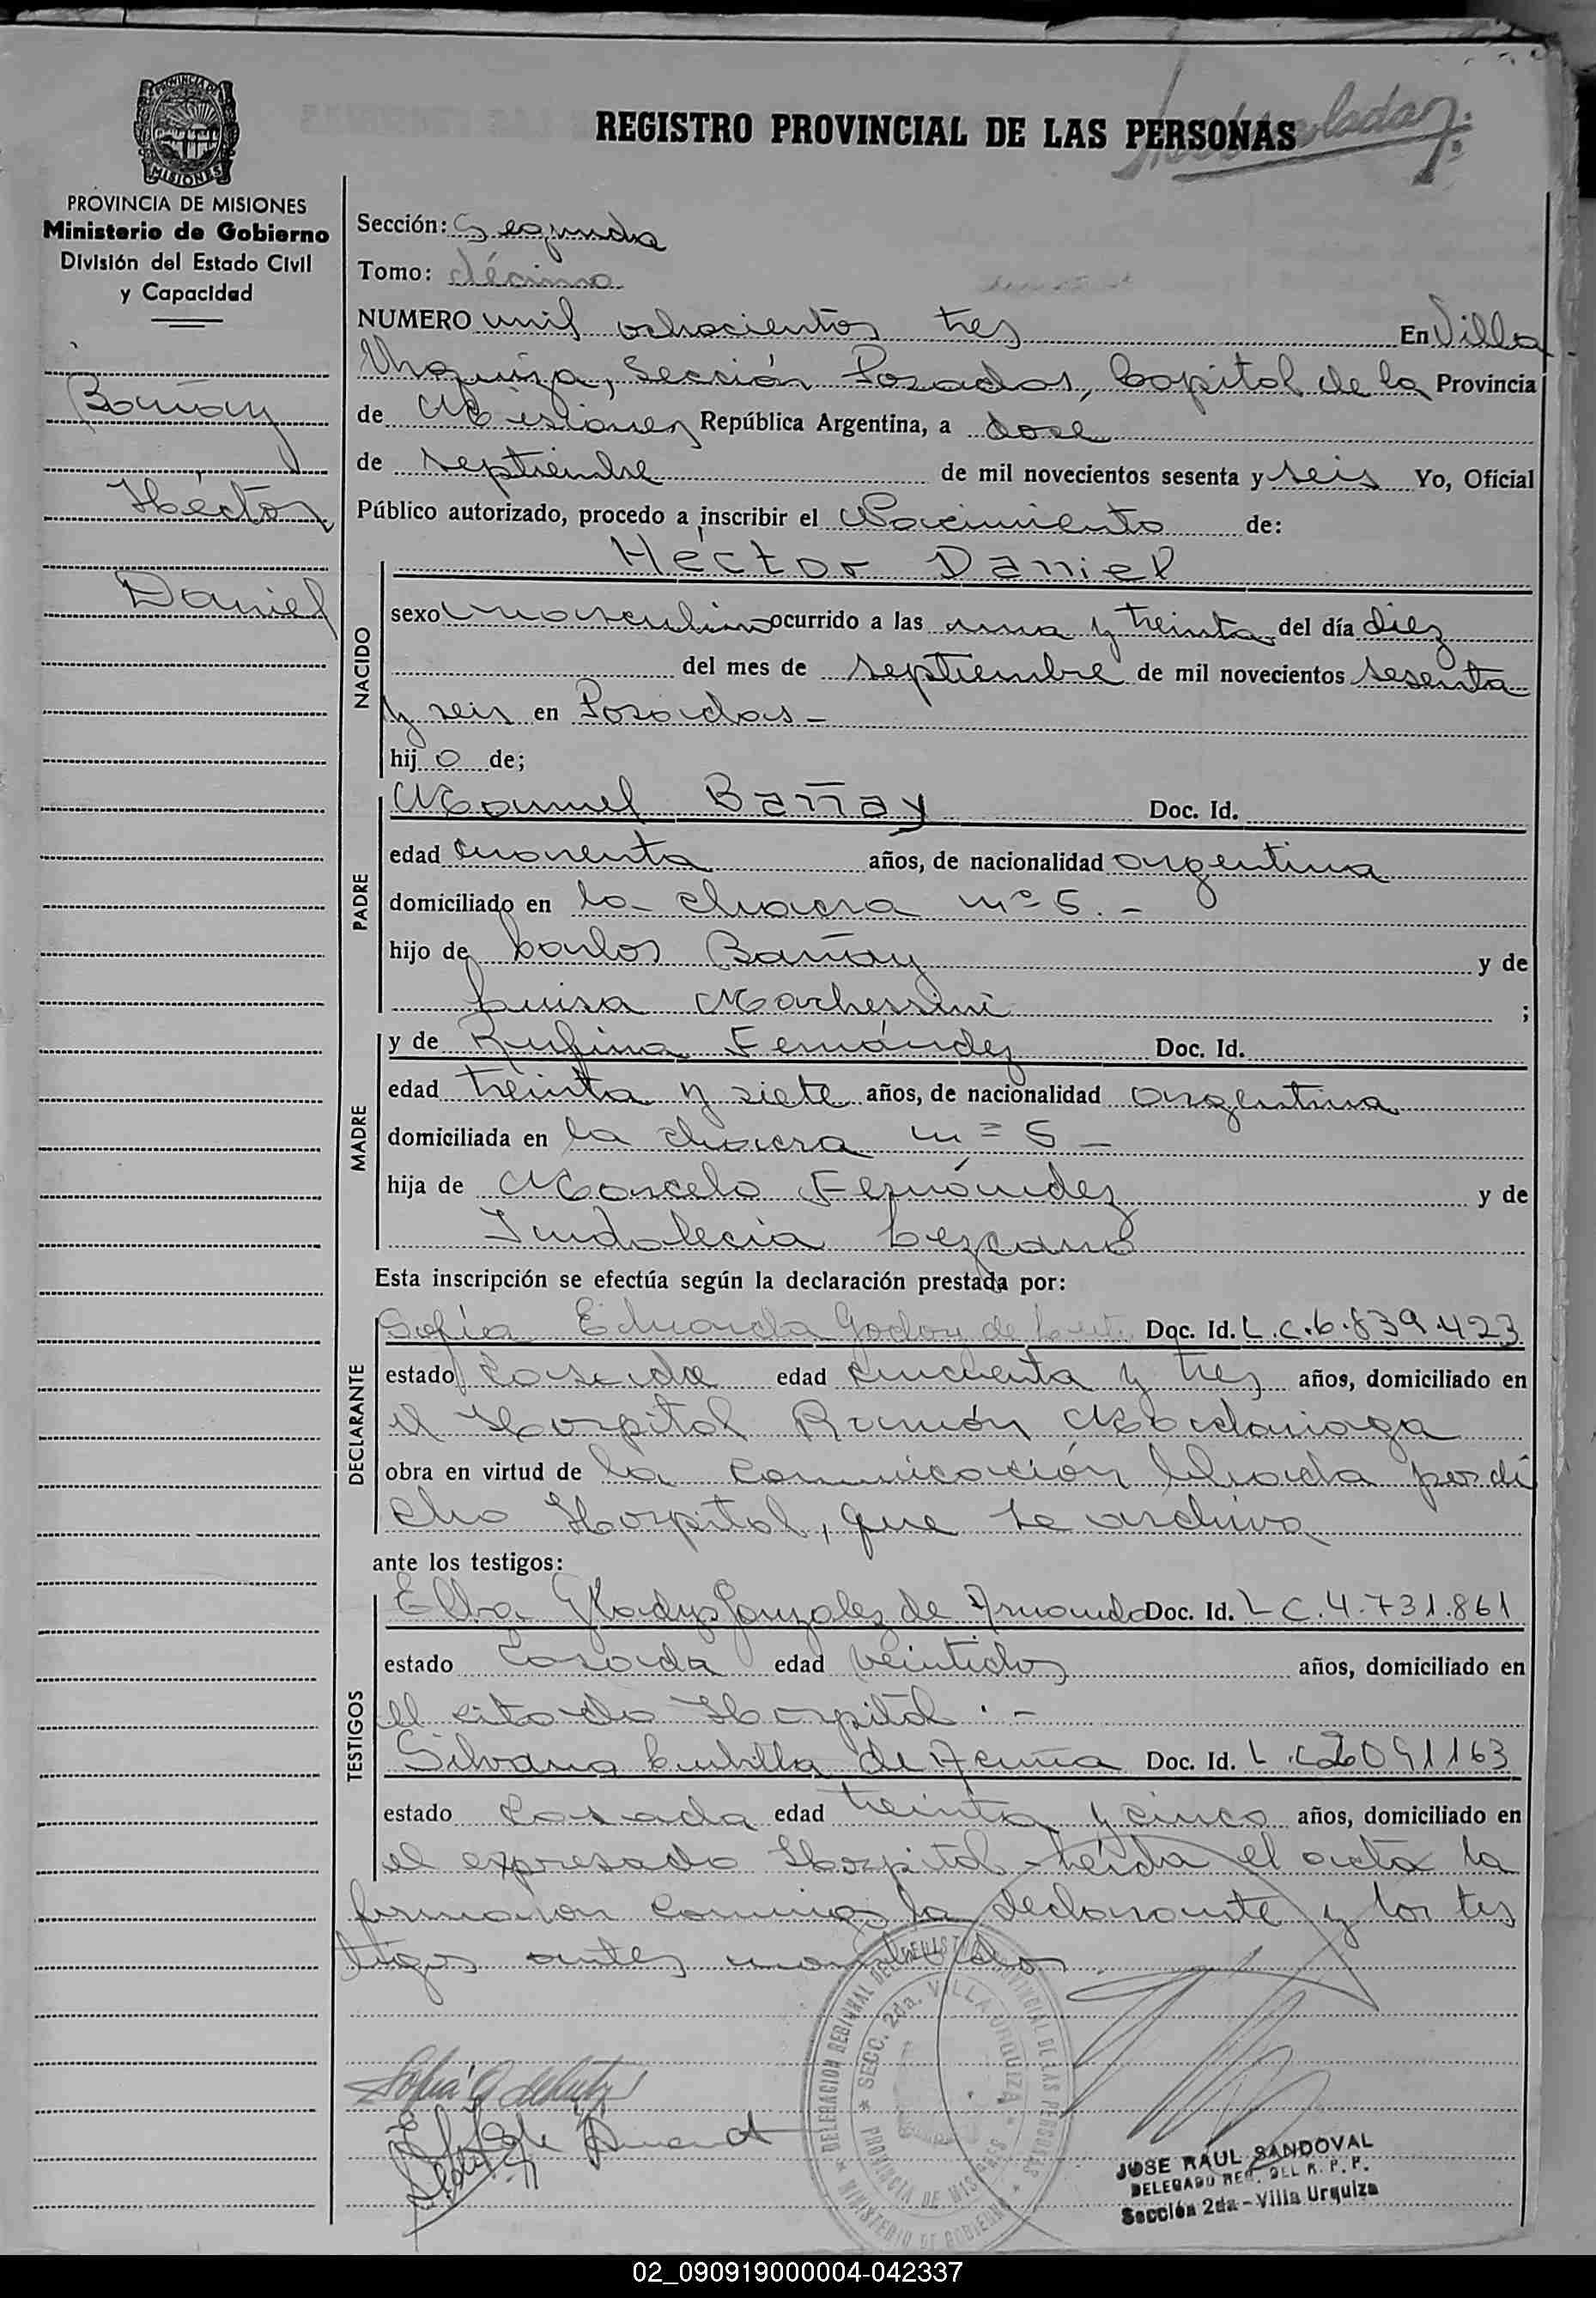 PROVINCIA DE
MISIONES
PROVINCIA DE MISIONES
Ministerio de Gobierno
División del Estado Civil
y Capacidad
Bañay
Héctor
Daniel
REGISTRO PROVINCIAL DE LAS PERSONAS
Sección: Segunda
Tomo: décimo
NUMERO mil ochocientos tres En Villa
Urquiza, Sección Posadas, Capital de la Provincia
de Misiones República Argentina, a doce
de septiembre de mil novecientos sesenta y seis Yo, Oficial
Público autorizado, procedo a inscribir el Nacimiento de:
NACIDO
Héctor Daniel
sexo masculino ocurrido a las una y treinta del día diez
del mes de septiembre de mil novecientos sesenta
y seis en Posadas -
hijo de;
PADRE
Manuel Bañay Doc. Id.
edad cuarenta años, de nacionalidad argentina
domiciliado en la chacra nº 5. -
hijo de Carlos Bañay y de
Luisa Marchessini ;
MADRE
y de Rufina Fernández Doc. Id.
edad treinta y siete años, de nacionalidad argentina
domiciliada en la chacra nº 5 -
hija de Marcelo Fernández y de
Indalecia Lezcano
Esta inscripción se efectúa según la declaración prestada por:
DECLARANTE
Sofía Eduarda Godoy de Doc. Id. L.C. 6.839.423
estado casada edad cincuenta y tres años, domiciliado en
el Hospital Ramón Madariaga
obra en virtud de la comunicación librada por di
cho Hospital, que se archiva
ante los testigos:
TESTIGOS
Elba Gladys González de Doc. Id. L C. 4.731.861
estado casada edad veintidos años, domiciliado en
el citado Hospital . -
Silvana de Acuña Doc. Id. L.C.
estado casada edad treinta y cinco años, domiciliado en
el expresado Hospital - leída el acta la
firmaron conmigo la declarante y los tes
tigos antes
DELEGACION REGIONAL DEL REGISTRO PROVINCIAL DE LAS PERSONAS
SECC. 2da. VILLA URQUIZA
PROVINCIA DE MISIONES
MINISTERIO DE GOBIERNO
JOSE RAUL SANDOVAL
DELEGADO REG. DEL R. P. P.
Sección 2da - Villa Urquiza
02_090919000004-042337